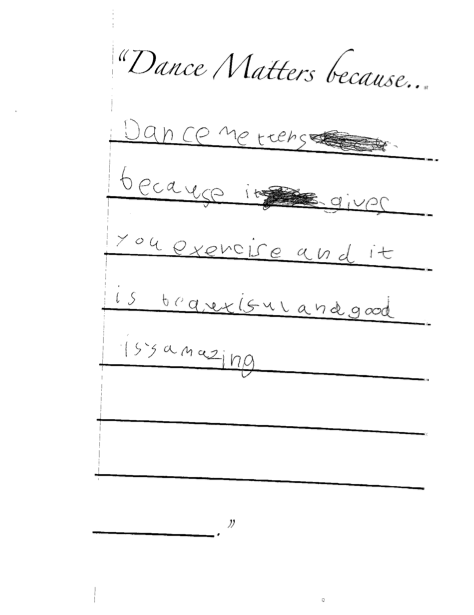 "Dance Matters because...
Dance metters
because it gives
you exercise and it
is beautisul and good
is's amazing
."